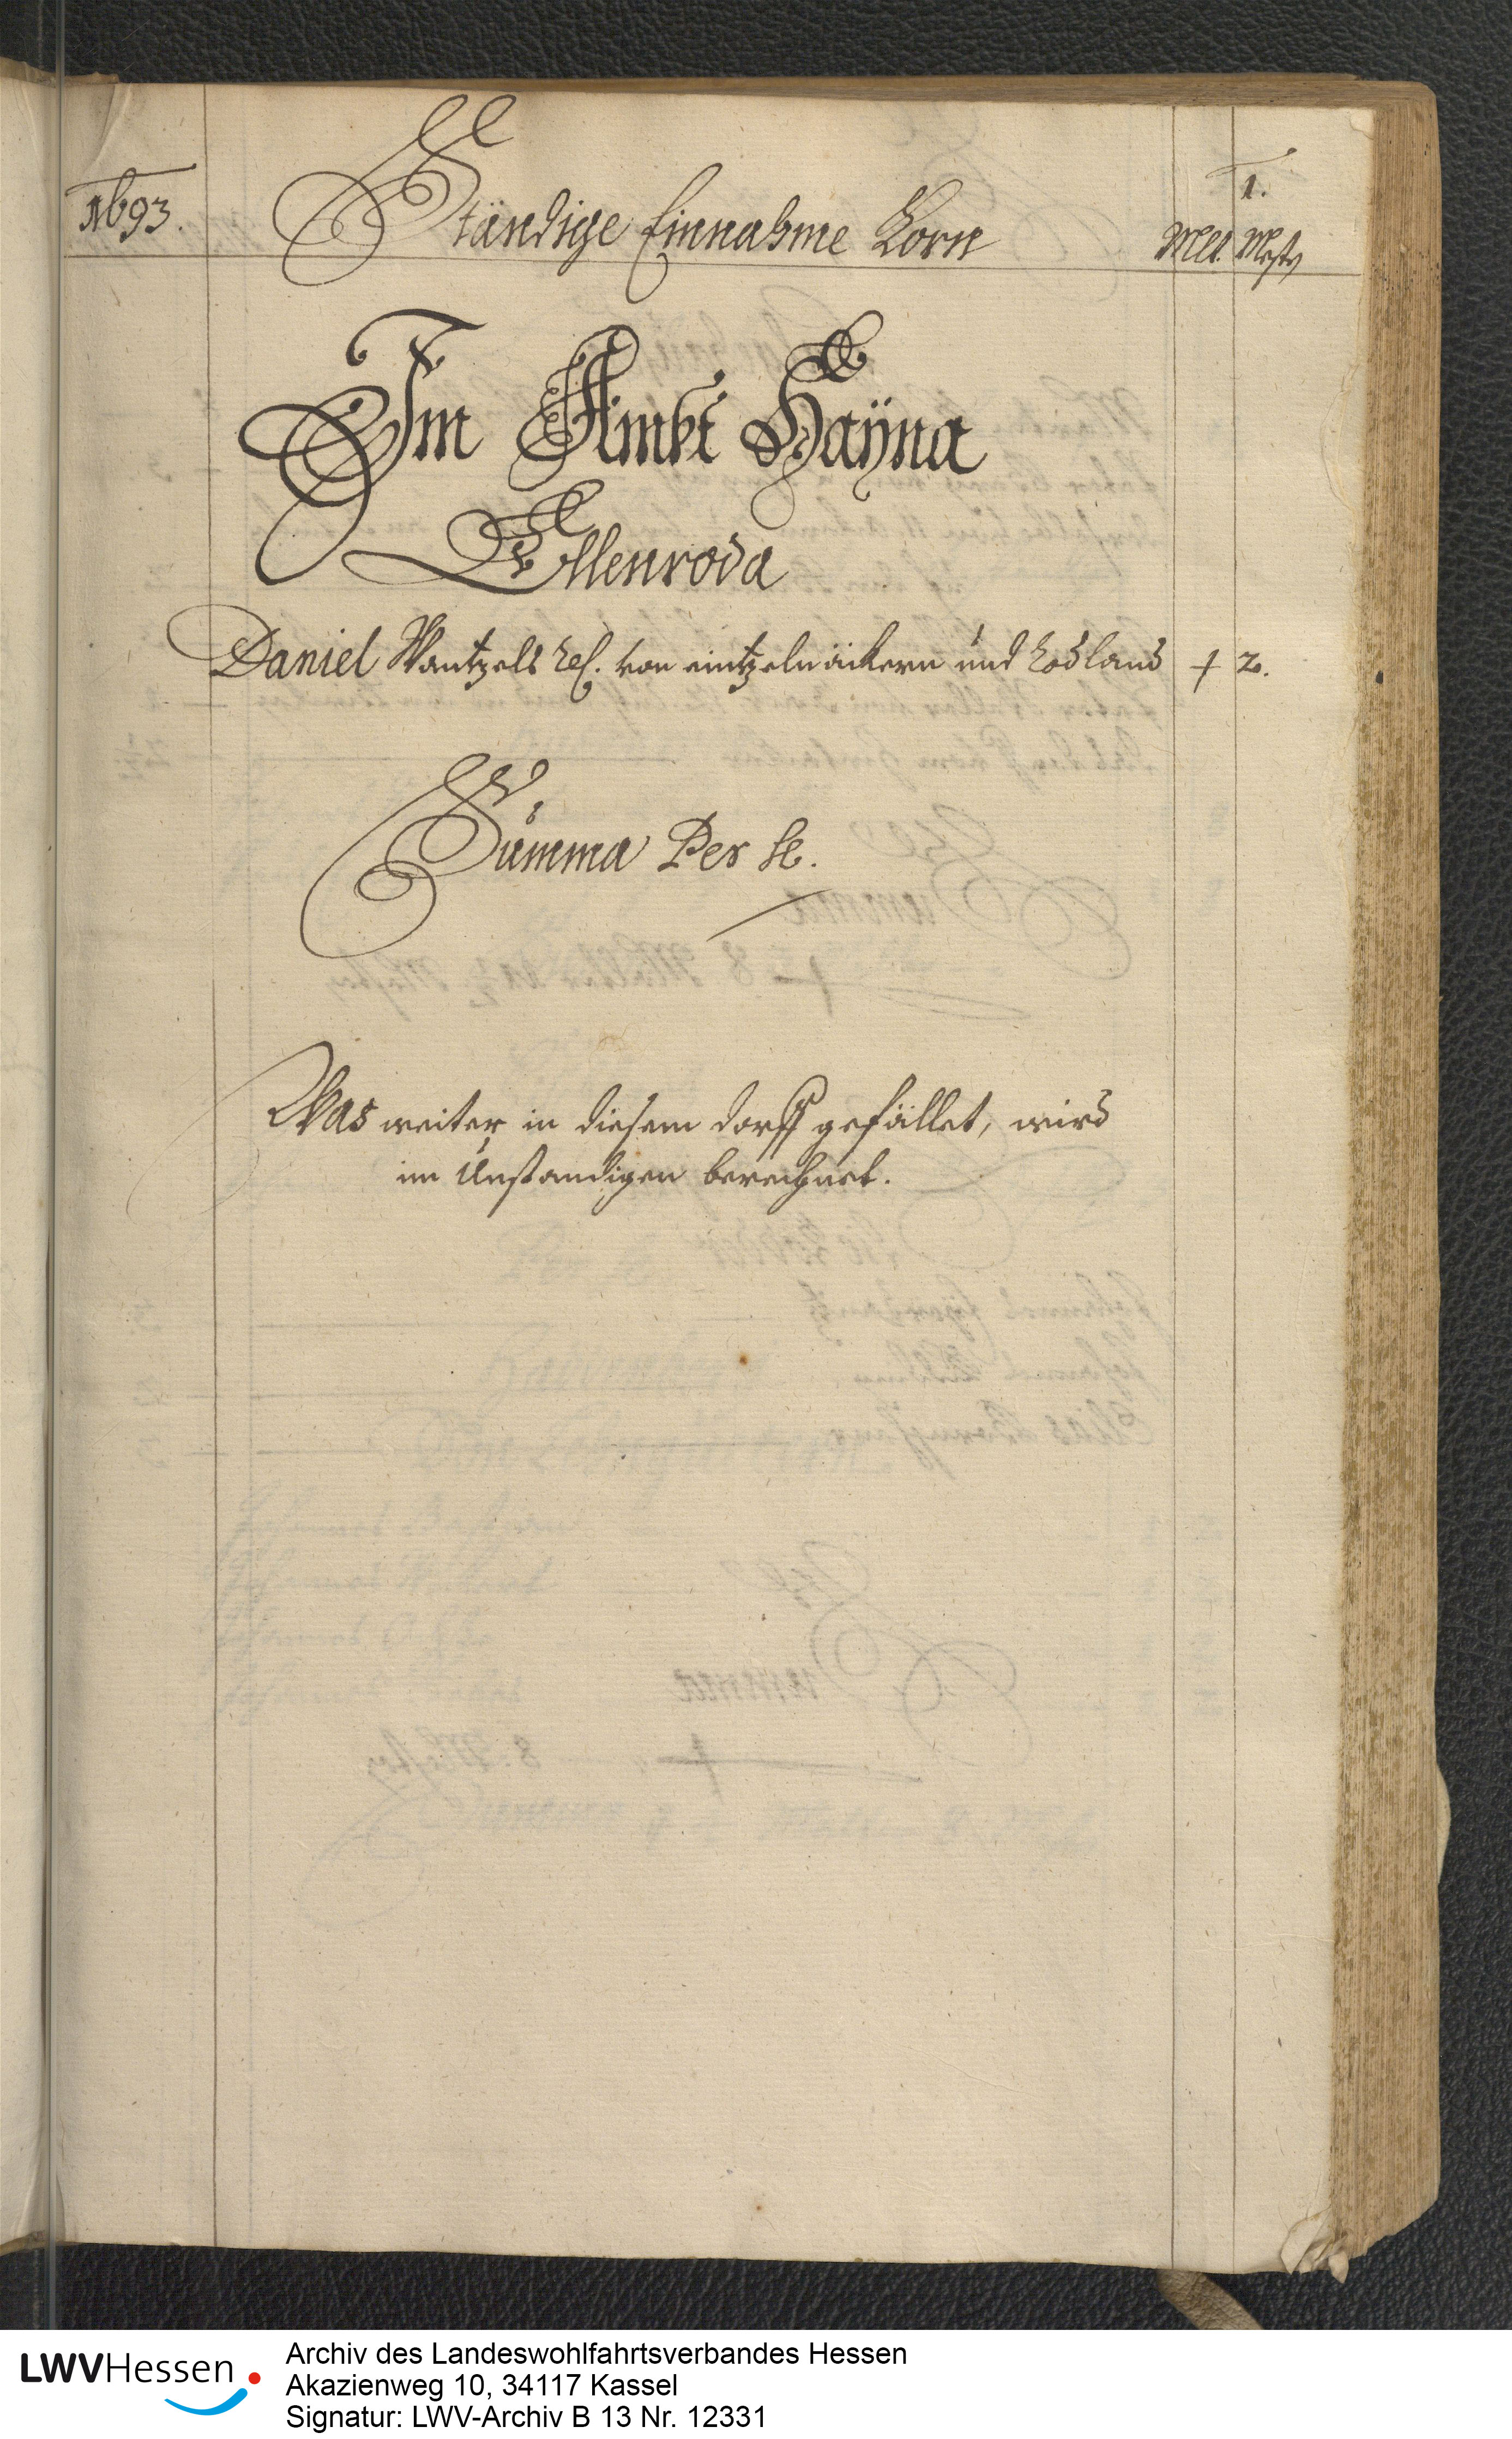 1693.
Ständige Einnahme Korn
1.
Mlt. Mest.
Im Ambt Haÿna
Ellenroda
Daniel Wantzels rel. von eintzeln äckern und Rodland † 2.
Summa Per se.
Was weiter in diesem dorff gefället, wird
im Unständigen berechnet.
LWVHessen
Archiv des Landeswohlfahrtsverbandes Hessen
Akazienweg 10, 34117 Kassel
Signatur: LWV-Archiv B 13 Nr. 12331